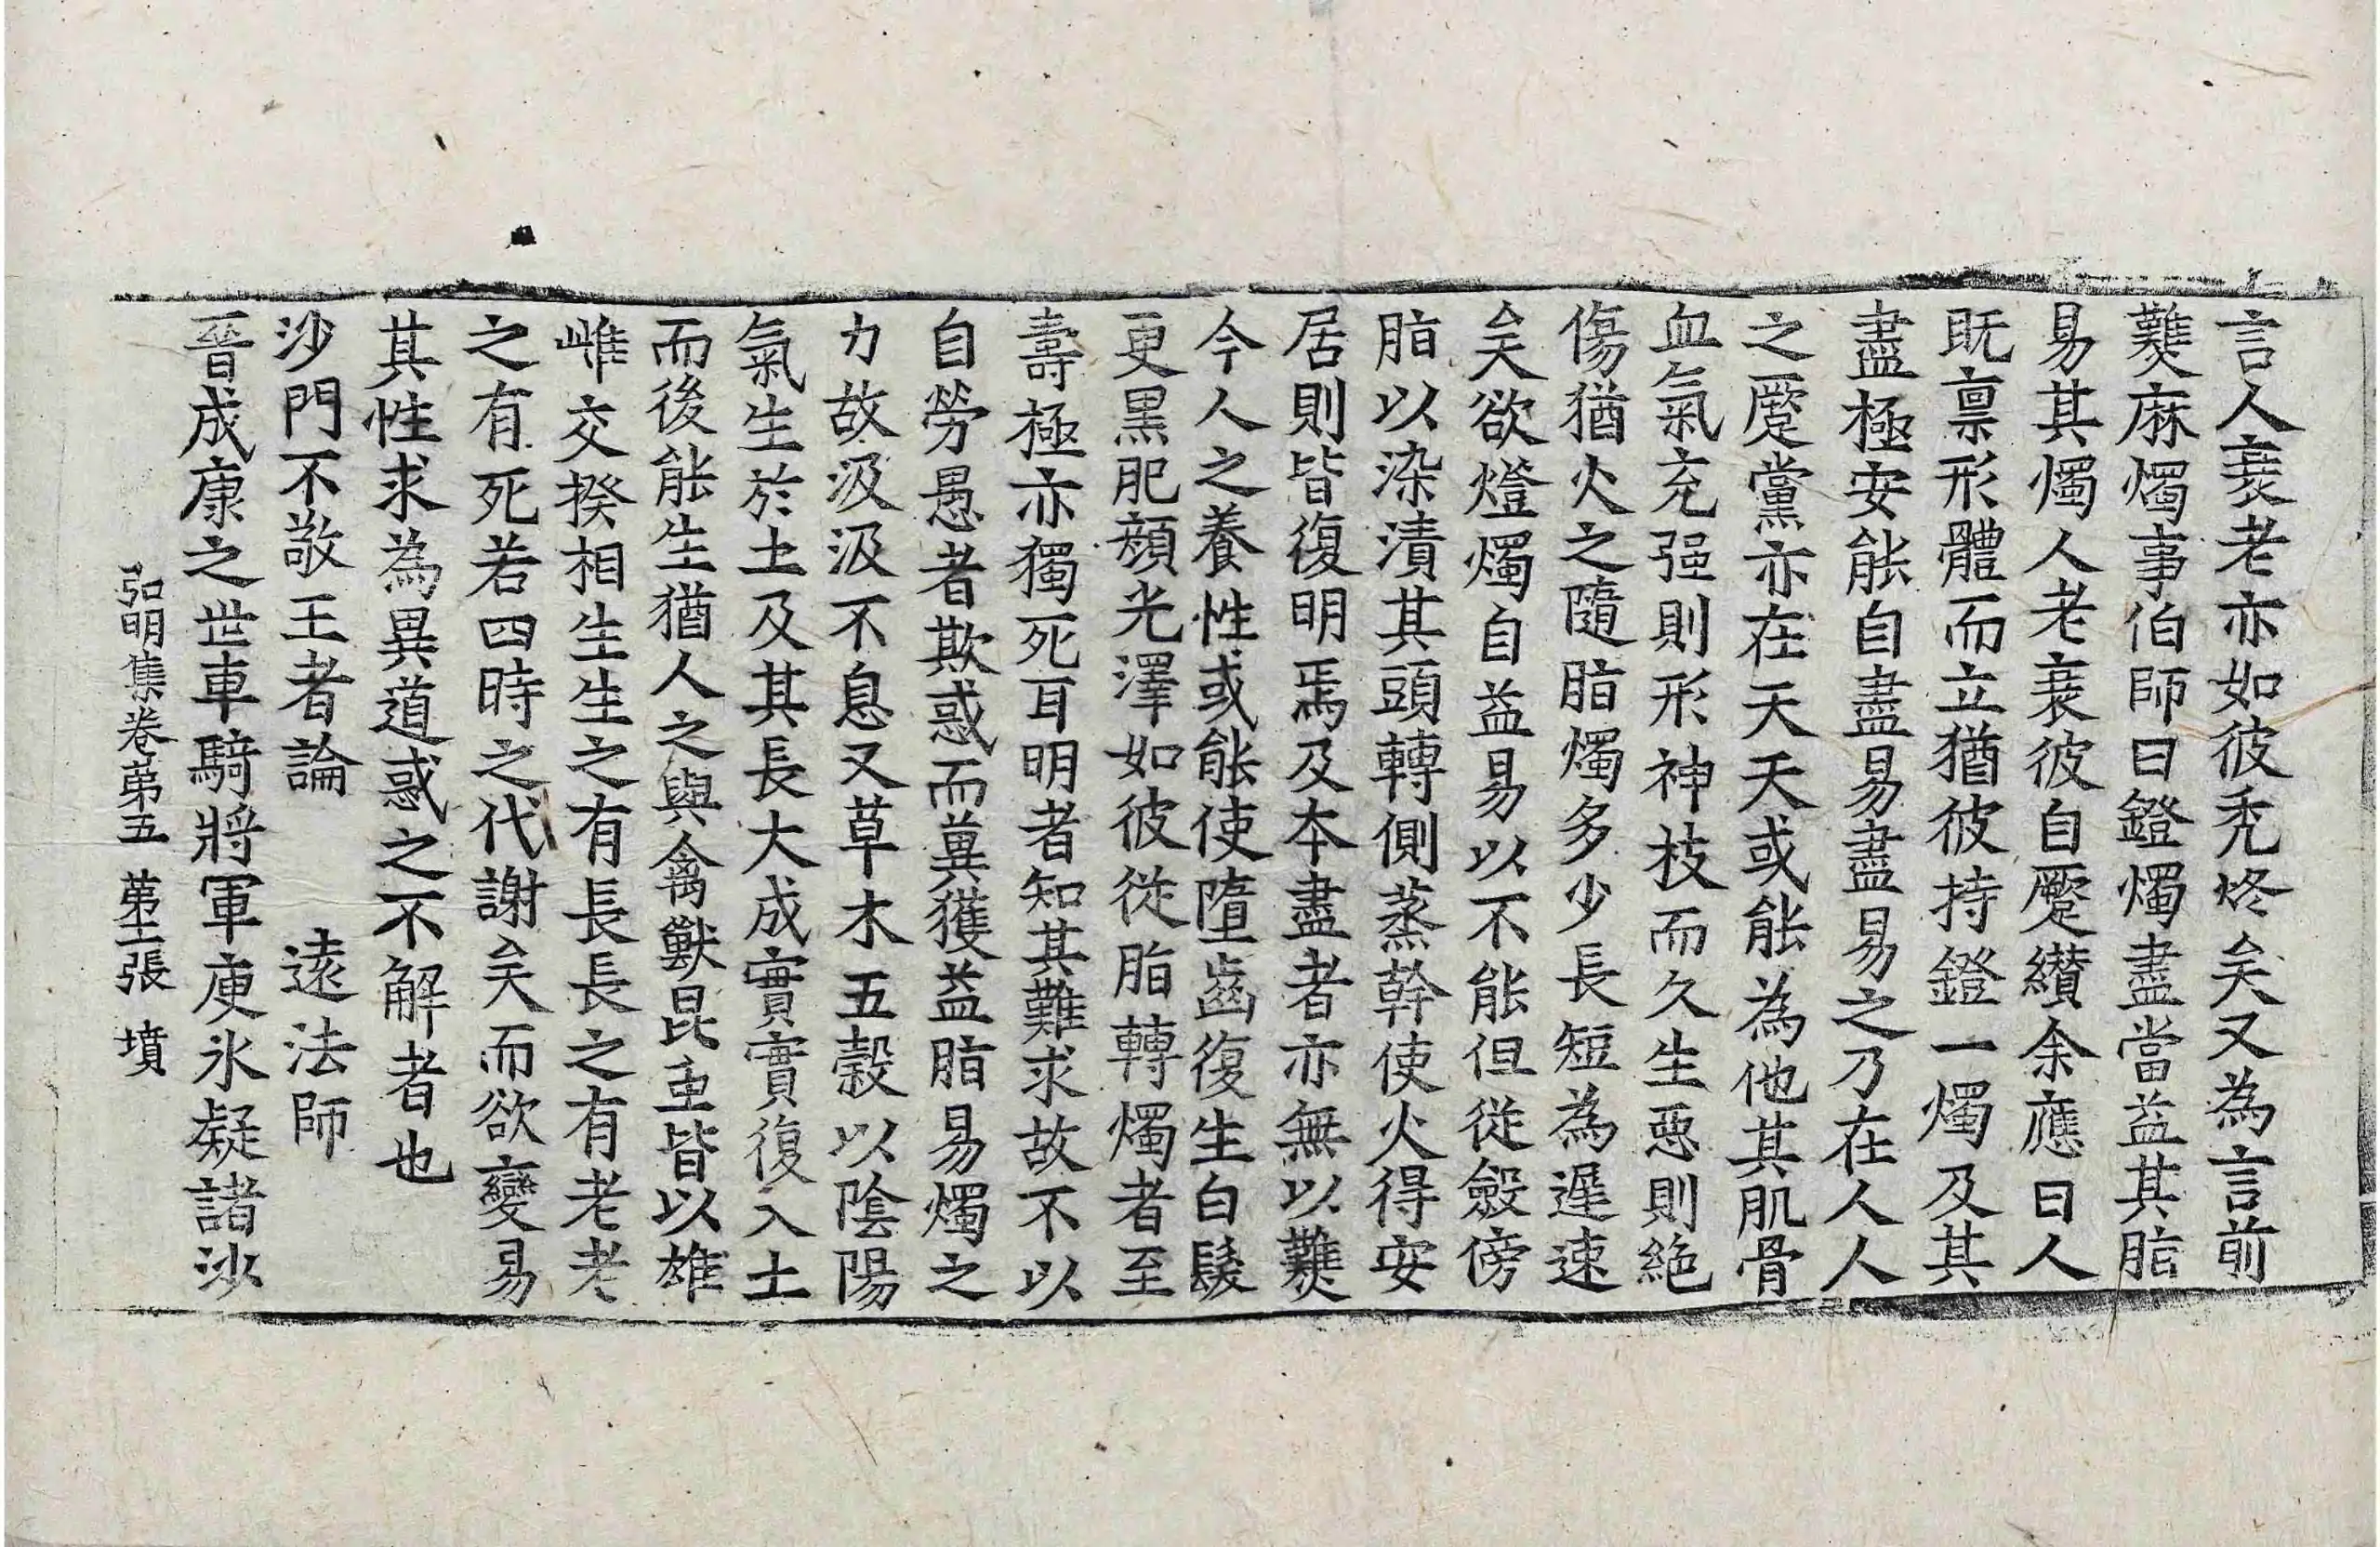 言人衰老亦如彼禿炷矣又為言前
㸐麻燭事伯師曰鐙燭盡當益其脂
易其燭人老衰彼自蹷纘余應曰人
旣禀形體而立猶彼持鐙一燭及其
盡極安能自盡易盡易之乃在人人
之蹷黨亦在天天或能為他其肌骨
血氣充强則形神枝而久生惡則絶
傷猶火之隨脂燭多少長短為遲速
矣欲燈燭自益易以不能但從斂傍
脂以染漬其頭轉側蒸幹使火得安
居則皆復明焉及本盡者亦無以㸐
今人之養性或能使墮齒復生白髮
更黑肥顔光澤如彼從脂轉燭者至
壽極亦獨死耳明者知其難求故不以
自勞愚者欺惑而兾獲益脂易燭之
力故汲汲不息又草木五穀以陰陽
氣生於土及其長大成實實復入土
而後能生猶人之與禽獸昆虫皆以雄
雌交揆相生生之有長長之有老老
之有死若四時之代謝矣而欲變易
其性求為異道惑之不解者也
沙門不敬王者論　遠法師
晉成康之世車騎將軍庾氷疑諸沙
弘明集卷苐五　苐二張　墳